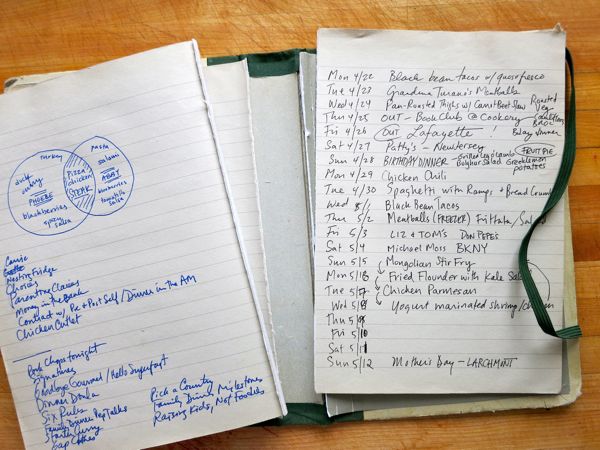 turkey
duck
curry
PHOEBE
blackberries
spicy
salsa
PIZZA
chicken
STEAK
pasta
salami
ABBY
blueberries
tomatillo
salsa
Nesting Fridge
Choices
Parenting Classes
Money in the Bank
Contract w/ Pre + Post Self / Dinner in the AM
Chicken Cutlet
Pork Chops tonight
Signatures
Goodbye Gourmet / Hello Superfast
Dinner Doula
Six Rules
Family Dinner Pep Talks
Starter Curry
Pick a Country
Family Dinner Milestones
Raising Kids, Not Foodies
Mon 4/22 Black bean tacos w/ queso fresco
Tue 4/23 Grandma Turano's Meatballs
Wed 4/24 Pan-Roasted Thighs w/ Carrot Beet Slaw
Roasted
Veg
Thu 4/25 OUT - Book Club @ Cookery
Fri 4/26 OUT Lafayette!
Bday Dinner
Sat 4/27 Patty's - New Jersey
FRUIT PIE
Sun 4/28 BIRTHDAY DINNER - Grilled Leg o Lamb
Bulghar Salad Greek lemon
potatoes
Mon 4/29 Chicken Chili
Tue 4/30 Spaghetti with Ramps + Bread Crumbs
Wed 5/1 Black Bean Tacos
Thu 5/2 Meatballs (FREEZER) Frittata/Salad
Fri 5/3 LIZ & TOM'S DON PEPE'S
Sat 5/4 Michael Moss BKNY
Sun 5/5 Mongolian Stir Fry
Mon 5/6 Fried Flounder with Kale
Tue 5/7 Chicken Parmesan
Wed 5/8 Yogurt marinated shrimp/chicken
Thu 5/9
Fri 5/10
Sat 5/11
Sun 5/12 Mother's Day - LARCHMONT